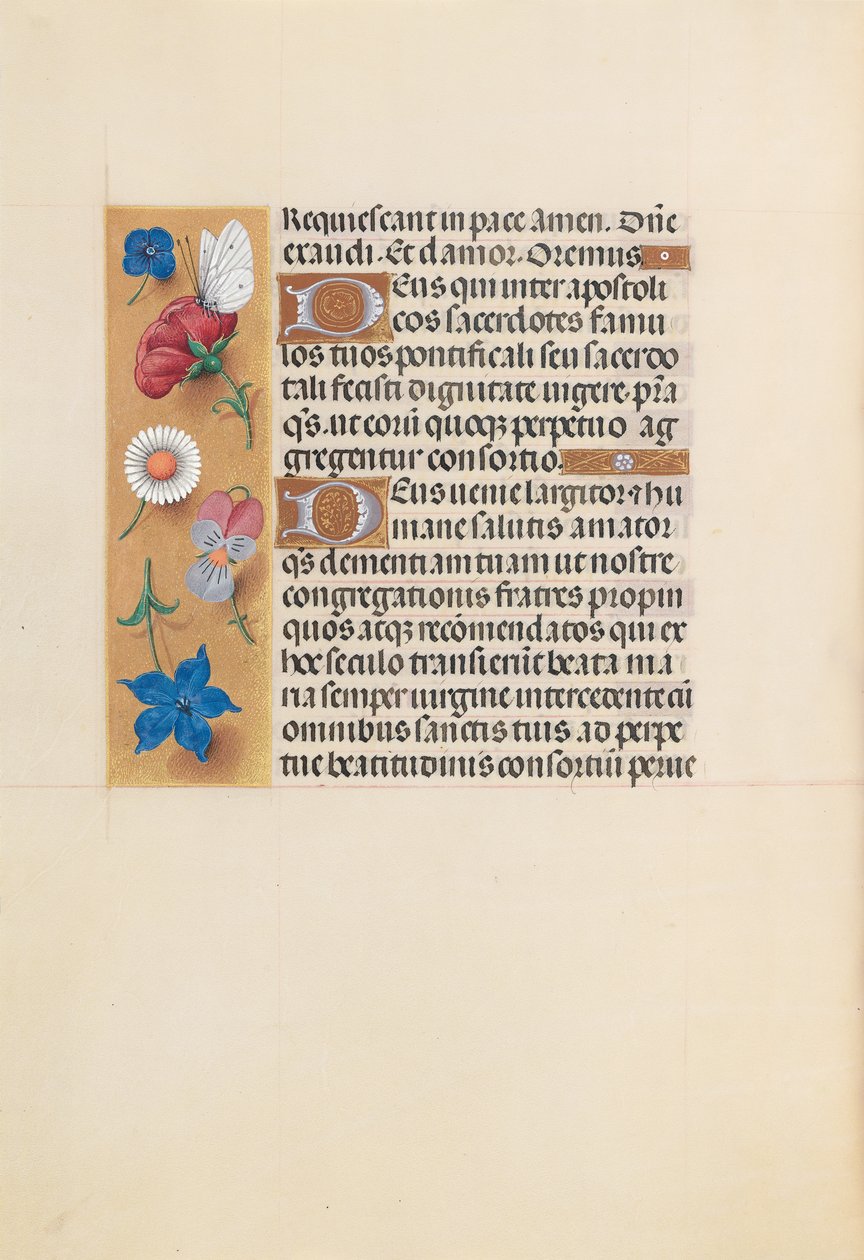 Requiescant in pace Amen. Dn̄e
exaudi. Et clamor. Oremus
Deus qui inter apostoli
cos sacerdotes famu
los tuos pontificali seu sacerdo
tali fecisti dignitate uigere. pr̄a
q̄s. ut eorū quoqꝫ perpetuo ag
gregentur consortio.
Deus uenie largitor ⁊ hu
mane salutis amator
q̄s clementiam tuam ut nostre
congregationis fratres propin
quos atqꝫ recōmendatos qui ex
hoc seculo transierūt beata ma
ria semper uirgine intercedente cū
omnibus sanctis tuis ad perpe
tue beatitudinis consortiū perue